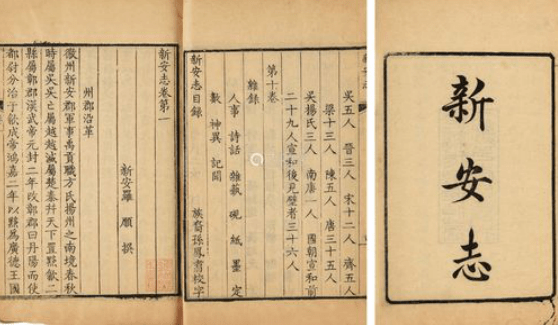 新安志
吳五人 晉三人 宋十二人 齊五人
梁十三人 陳五人 唐三十五人
吳楊氏三人 南唐一人 國朝宣和前
二十九人宣和後見壁者三十六人
第十卷
雜錄
人事 詩話 雜藝 硯 紙 墨 定
數 神異 記聞
新安志目錄 族裔孫鳳翥校字
新安志卷第一
新安羅 願 撰
州郡沿革
徽州新安郡軍事禹貢職方氏揚州之南境春秋
時屬吳吳亡屬越越滅屬楚秦并天下置黟歙二
縣屬鄣郡漢武帝元封二年改鄣郡曰丹陽而使
都尉分治于歙成帝鴻嘉二年以黟為廣德王國